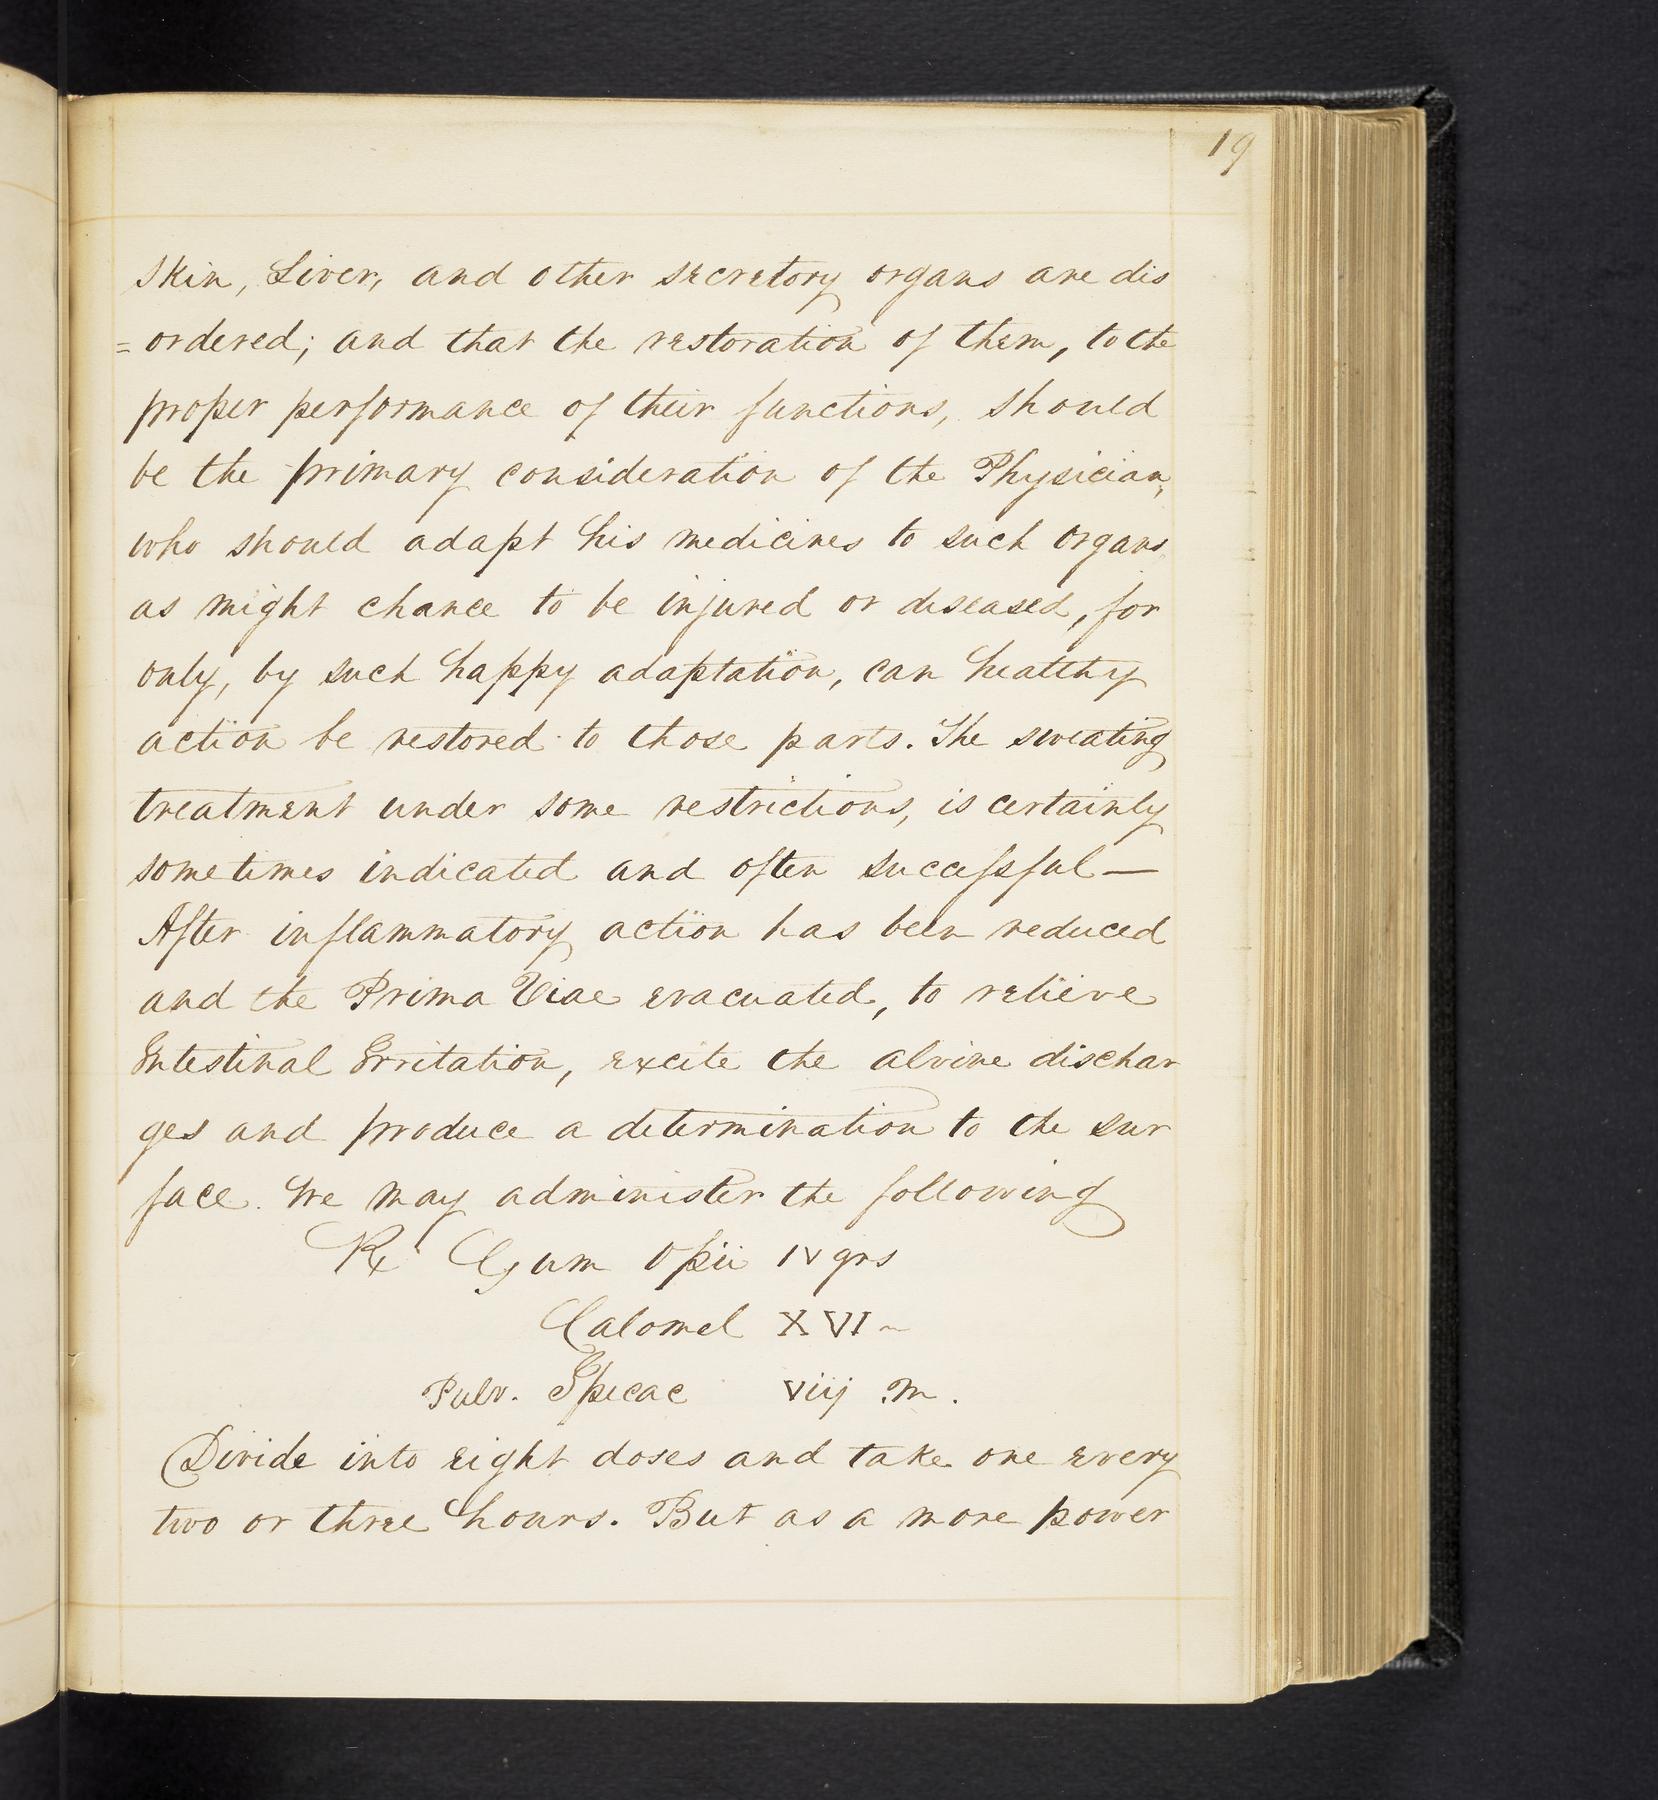 19
skin, Liver, and other secretory organs are dis
=ordered; and that the restoration of them, to the
proper performance of their functions, should
be the primary consideration of the Physician,
who should adapt his medicines to such organs
as might chance to be injured or diseased, for
only, by such happy adaptation, can healthy
action be restored to those parts. The sweating
treatment under some restrictions, is certainly
sometimes indicated and often successful—
After inflammatory action has been reduced
and the Prima Viae evacuated, to relieve
Intestinal Irritation, excite the alvine dischar
ges and produce a determination to the sur
face. We may administer the following
Rx Gum Opii IV grs
Calomel XVI ~
Pulv. Ipecac viij .m.
Divide into eight doses and take one every
two or three hours. But as a more power